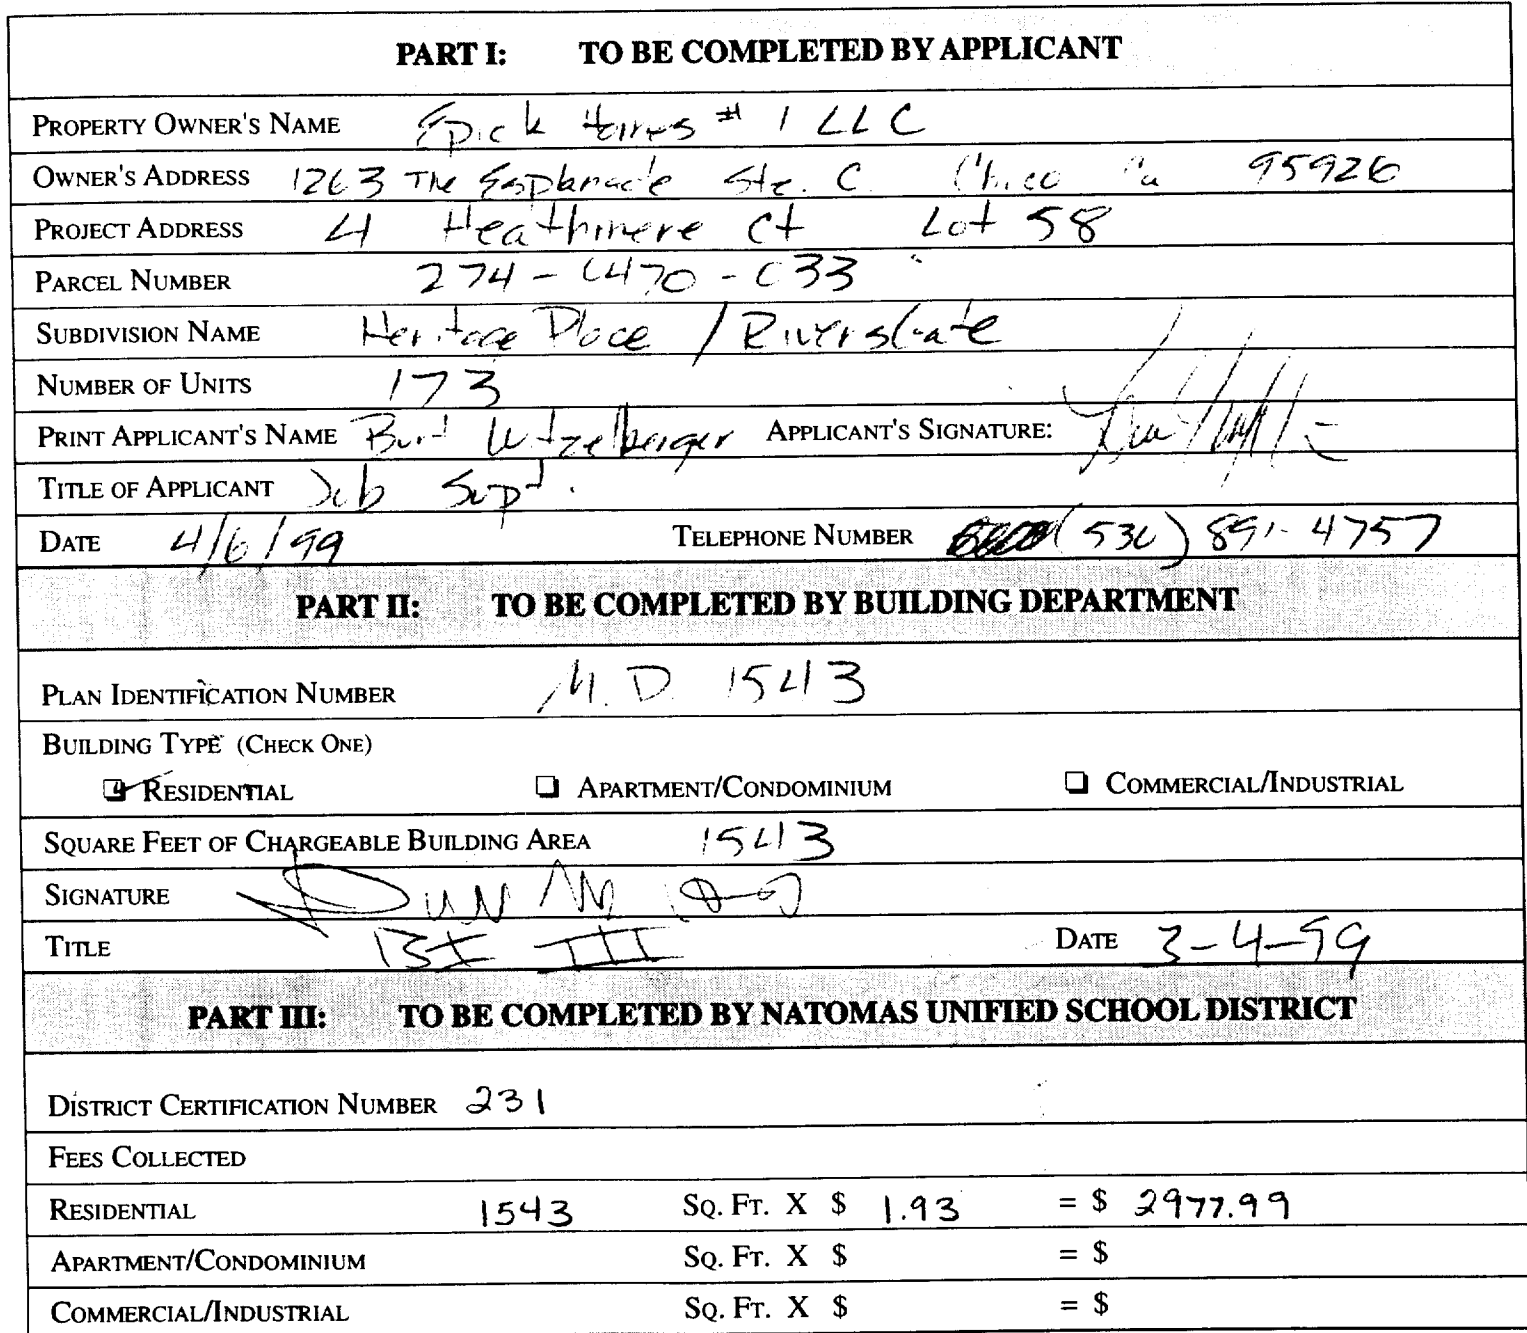 PART I: TO BE COMPLETED BY APPLICANT
PROPERTY OWNER'S NAME Epick Homes # 1 LLC
OWNER'S ADDRESS 1263 The Esplanade Ste. C. Chico Ca 95926
PROJECT ADDRESS 4 Heathmere Ct Lot 58
PARCEL NUMBER 274-0470-033
SUBDIVISION NAME Heritage Place / Riversgate
NUMBER OF UNITS 173
PRINT APPLICANT'S NAME Burt Witzelberger APPLICANT'S SIGNATURE:
TITLE OF APPLICANT Job Supt.
DATE 4/6/99 TELEPHONE NUMBER (530) 891-4757
PART II: TO BE COMPLETED BY BUILDING DEPARTMENT
PLAN IDENTIFICATION NUMBER M.D. 1543
BUILDING TYPE (CHECK ONE)
RESIDENTIAL APARTMENT/CONDOMINIUM COMMERCIAL/INDUSTRIAL
SQUARE FEET OF CHARGEABLE BUILDING AREA 1543
SIGNATURE
TITLE BI III DATE 3-4-99
PART III: TO BE COMPLETED BY NATOMAS UNIFIED SCHOOL DISTRICT
DISTRICT CERTIFICATION NUMBER 231
FEES COLLECTED
RESIDENTIAL 1543 SQ. FT. X $ 1.93 = $ 2977.99
APARTMENT/CONDOMINIUM SQ. FT. X $ = $
COMMERCIAL/INDUSTRIAL SQ. FT. X $ = $